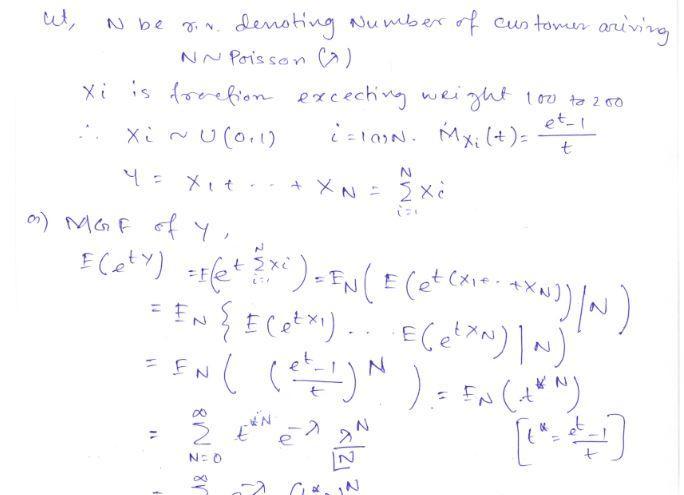 Let, N be r.v. denoting Number of customer ariving
N ~ Poisson (λ)
Xi is fraction excecting weight 100 to 200
∴ Xi ~ U(0,1) i = 1(1)N. M_{Xi}(t) = \frac{e^t-1}{t}
Y = X_1 + ... + X_N = \sum_{i=1}^{N} Xi
a) MGF of Y,
E(e^{tY}) = E(e^{t \sum_{i=1}^{N} Xi}) = E_N( E(e^{t(X_1+...+X_N)}) | N )
= E_N { E(e^{tX_1}) ... E(e^{tX_N}) | N )
= E_N ( (\frac{e^t-1}{t})^N ) = E_N (t^{*N})
= \sum_{N=0}^{∞} t^{*N} e^{-λ} \frac{λ^N}{|N} [t^* = \frac{e^t-1}{t}]